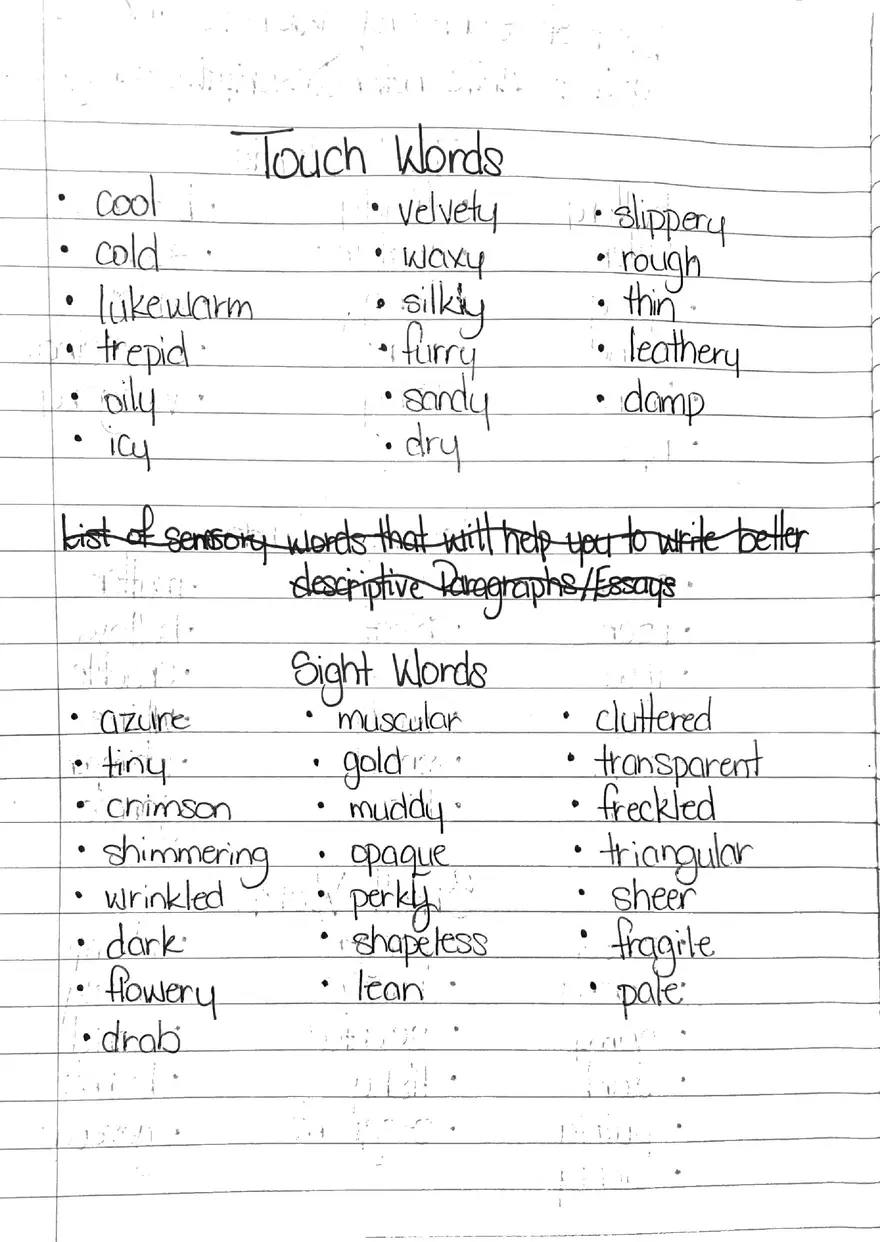 Touch Words
• cool • velvety • slippery
• cold • waxy • rough
• lukewarm • silky • thin
• trepid • furry • leathery
• oily • sandy • damp
• icy • dry
List of sensory words that will help you to write better
descriptive Paragraphs/Essays
Sight Words
• azure • muscular • cluttered
• tiny • gold • transparent
• crimson • muddy • freckled
• shimmering • opaque • triangular
• wrinkled • perky • sheer
• dark • shapeless • fragile
• flowery • lean • pale
• drab